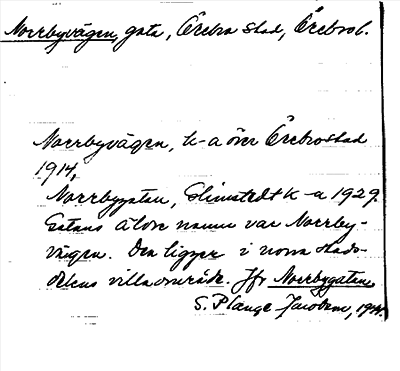 Norrbyvägen, gata, Örebro stad, Örebro l.
Norrbyvägen, k-a över Örebro stad
1914.
Norrbygatan, Glimstedt k-a 1929.
Gatans äldre namn var Norrby-
vägen. Den ligger i norra stads-
delens villaområde. Jfr Norrbygatan.
S. Plange Jacobson, 19